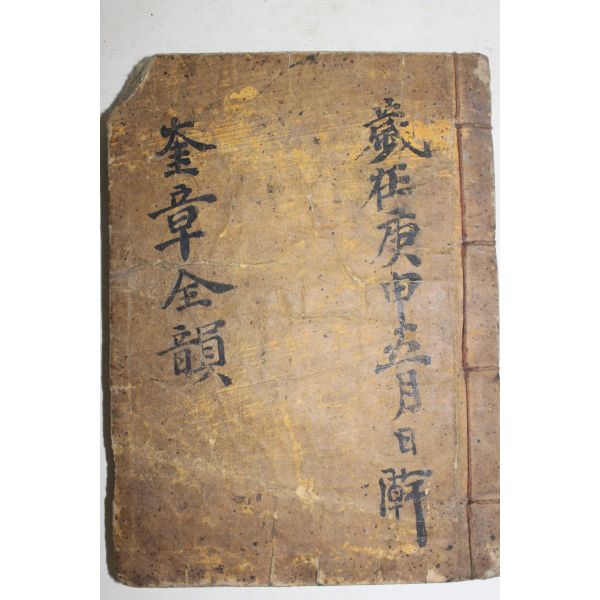 歲在庚申五月日
奎章全韻